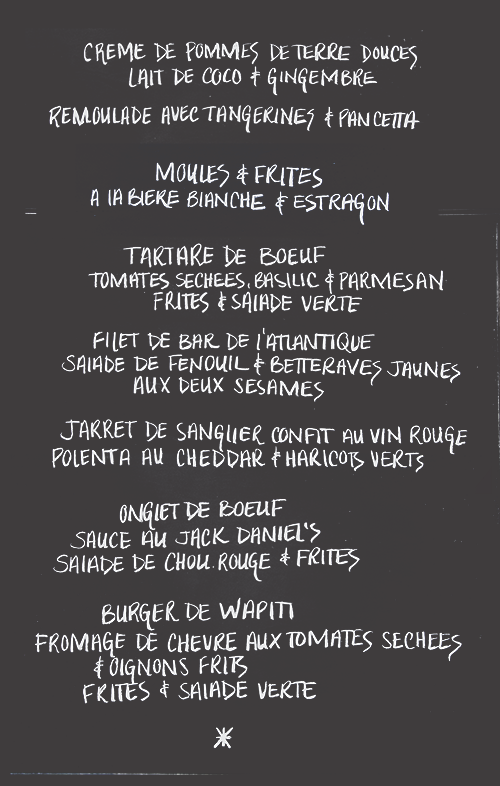 CREME DE POMMES DE TERRE DOUCES
LAIT DE COCO & GINGEMBRE
REMOULADE AVEC TANGERINES & PANCETTA
MOULES & FRITES
A LA BIERE BLANCHE & ESTRAGON
TARTARE DE BOEUF
TOMATES SECHEES, BASILIC & PARMESAN
FRITES & SALADE VERTE
FILET DE BAR DE L'ATLANTIQUE
SALADE DE FENOUIL & BETTERAVES JAUNES
AUX DEUX SESAMES
JARRET DE SANGLIER CONFIT AU VIN ROUGE
POLENTA AU CHEDDAR & HARICOTS VERTS
ONGLET DE BOEUF
SAUCE AU JACK DANIEL'S
SALADE DE CHOU ROUGE & FRITES
BURGER DE WAPITI
FROMAGE DE CHEVRE AUX TOMATES SECHEES
& OIGNONS FRITS
FRITES & SALADE VERTE